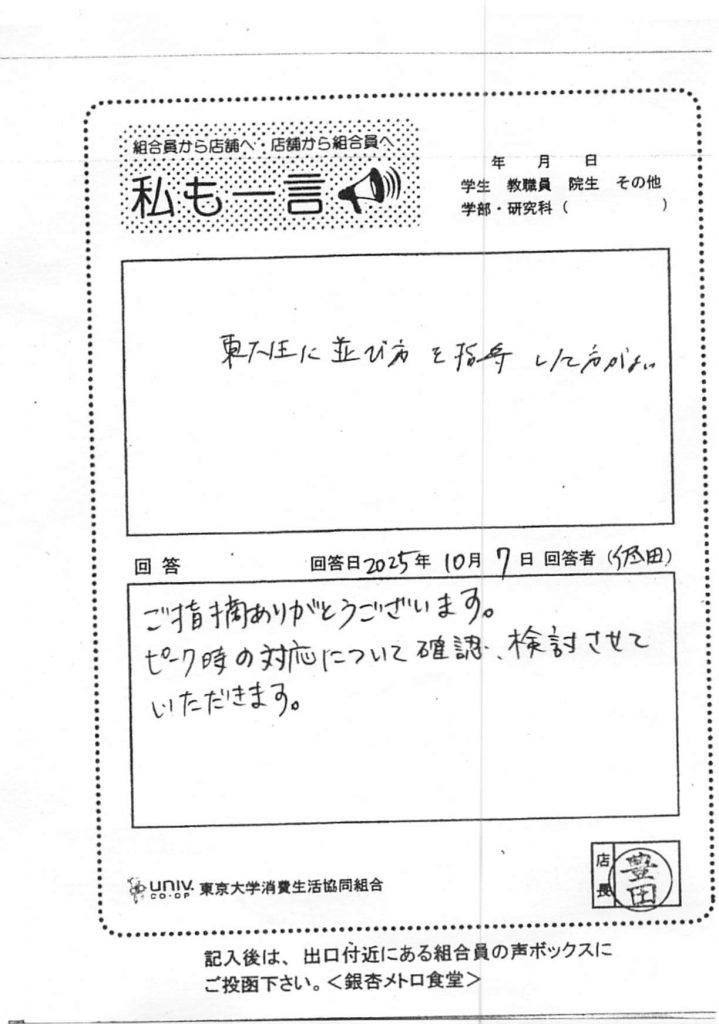 組合員から店舗へ・店舗から組合員へ
私も一言
年 月 日
学生 教職員 院生 その他
学部・研究科( )
東大生に並び方を指導した方がよい
回答 回答日2025年10月7日 回答者(田)
ご指摘ありがとうございます。
ピーク時の対応について確認、検討させて
いただきます。
店長 豊田
univ. CO-OP 東京大学消費生活協同組合
記入後は、出口付近にある組合員の声ボックスに
ご投函下さい。<銀杏メトロ食堂>